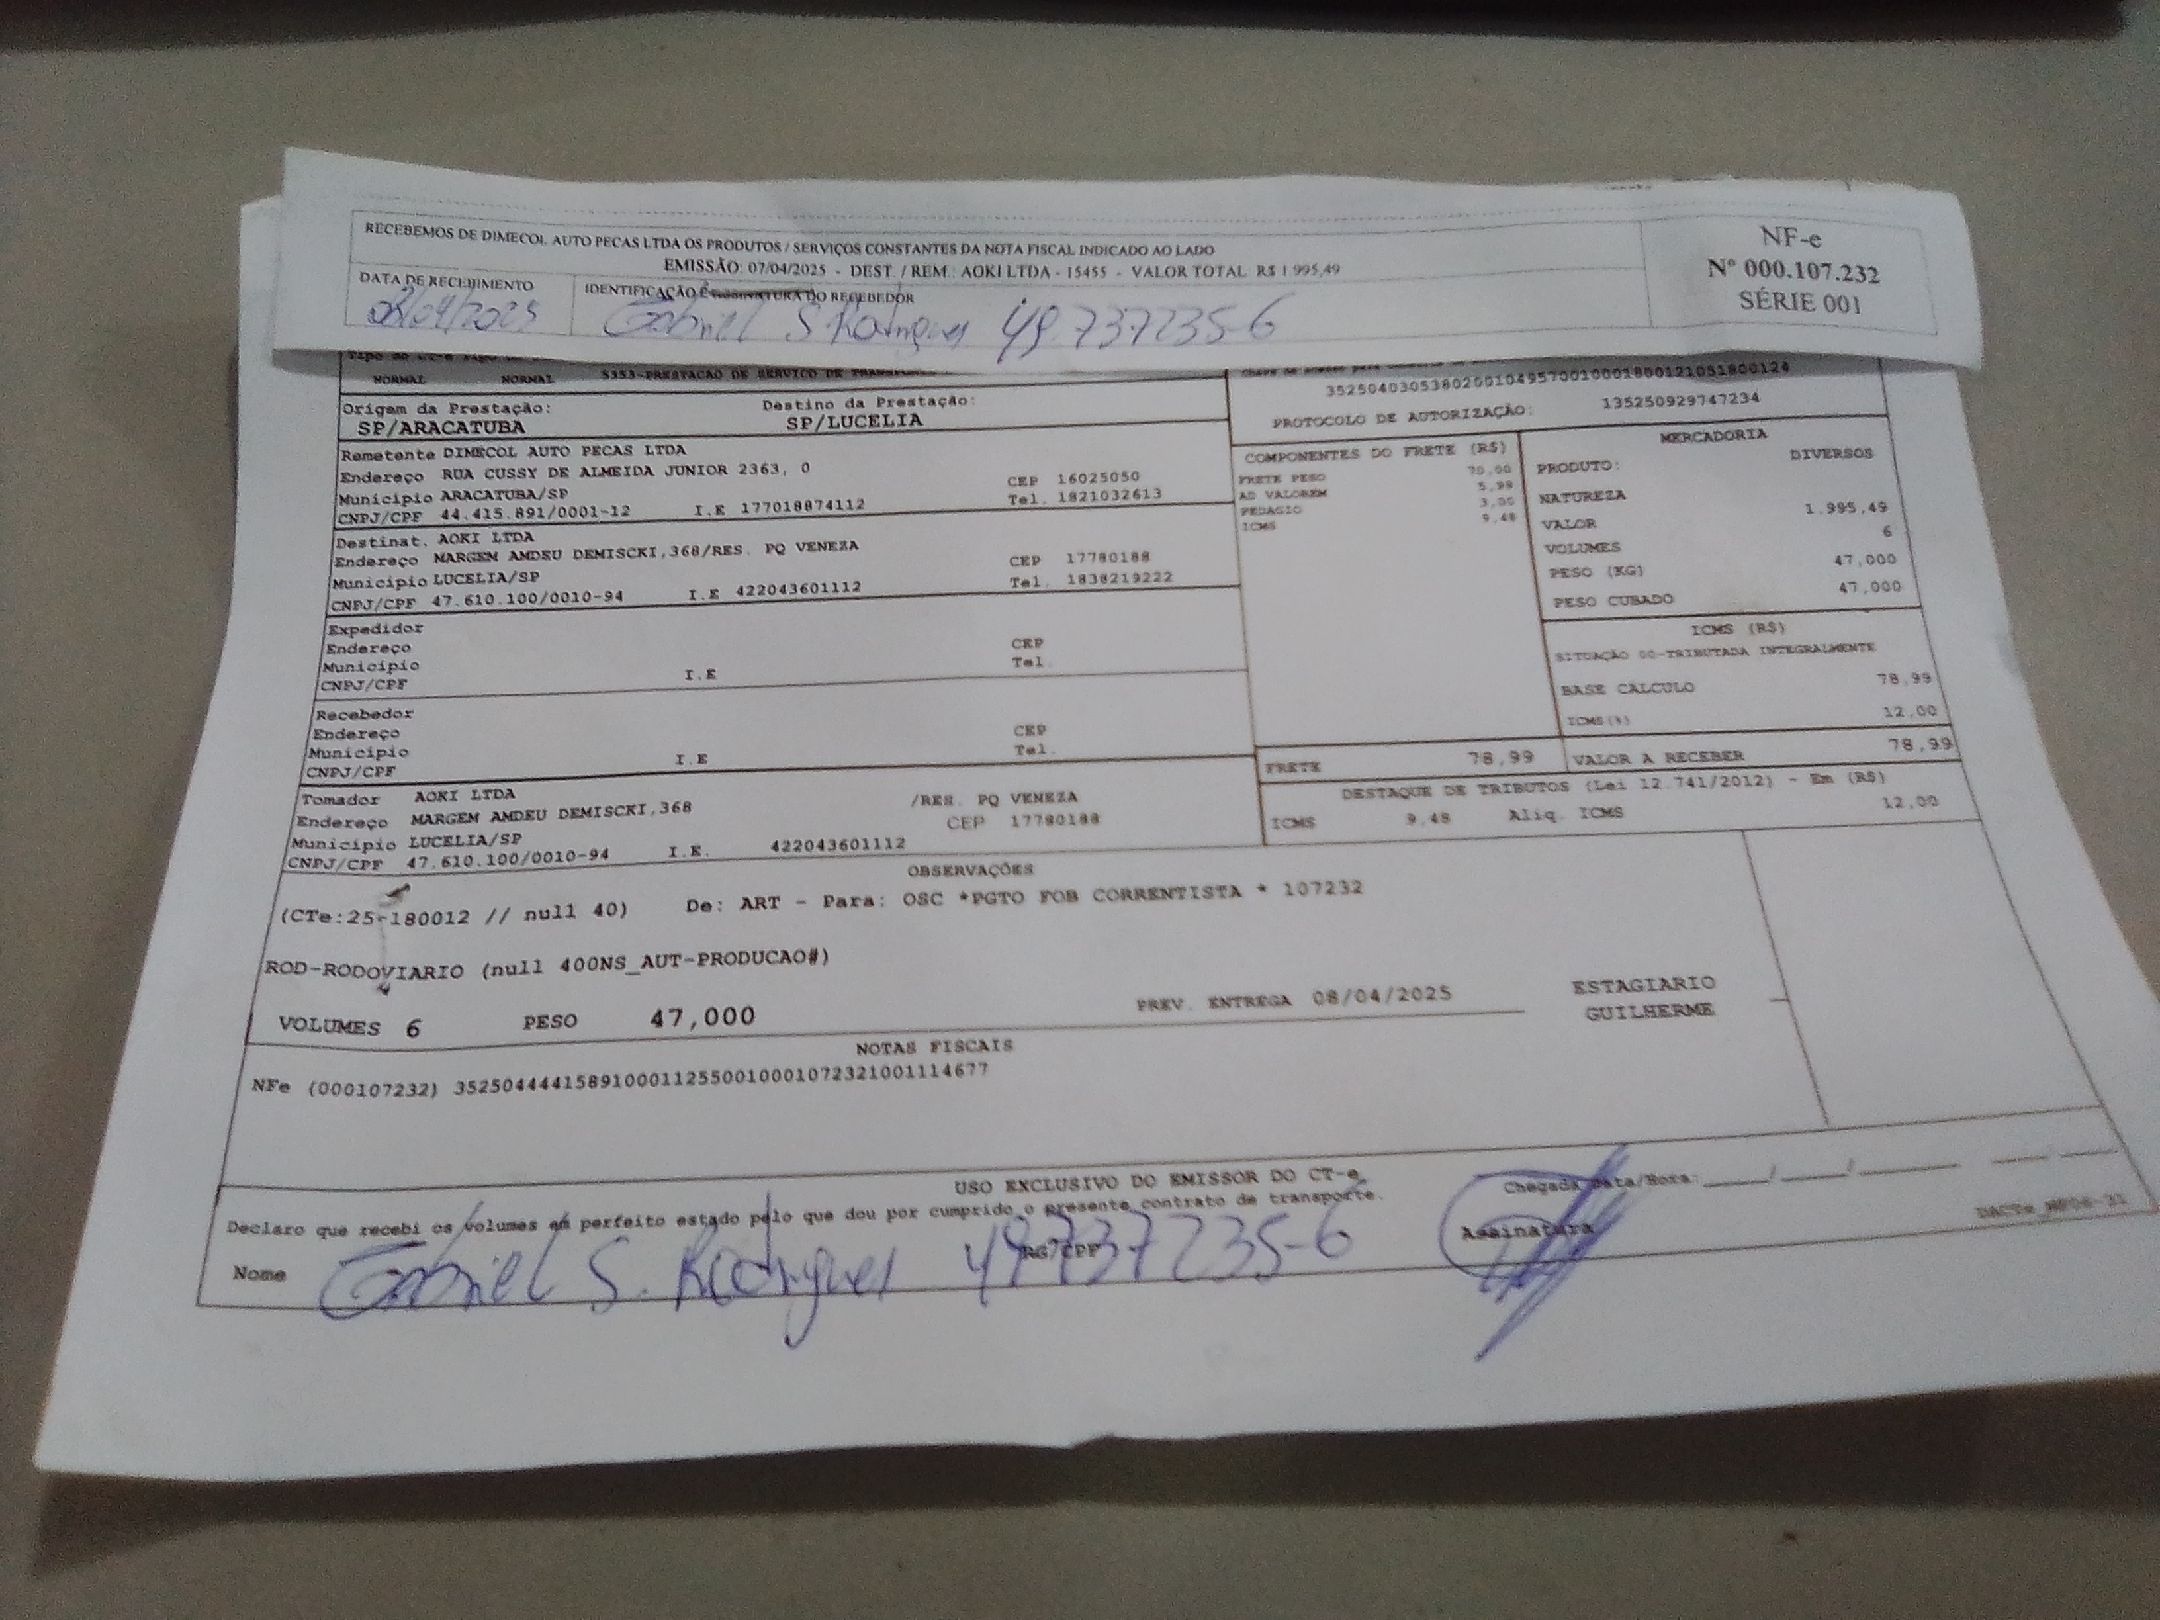 RECEBEMOS DE DIMECOL AUTO PECAS LTDA OS PRODUTOS / SERVIÇOS CONSTANTES DA NOTA FISCAL INDICADO AO LADO
EMISSÃO: 07/04/2025 - DEST. / REM.: AOKI LTDA - 15455 - VALOR TOTAL: R$ 1.995,49
NF-e
Nº 000.107.232
SÉRIE 001
DATA DE RECEBIMENTO
08/04/2025
IDENTIFICAÇÃO E ASSINATURA DO RECEBEDOR
Gabriel S Rodrigues 49.737235-6
NORMAL NORMAL 5353-PRESTACAO DE SERVICO DE
35250403053802001049570010001800121051800124
PROTOCOLO DE AUTORIZAÇÃO: 135250929747234
Origem da Prestação: Destino da Prestação:
SP/ARACATUBA SP/LUCELIA
Remetente DIMECOL AUTO PECAS LTDA
Endereço RUA CUSSY DE ALMEIDA JUNIOR 2363, 0 CEP 16025050
Município ARACATUBA/SP Tel. 1821032613
CNPJ/CPF 44.415.891/0001-12 I.E 177018874112
Destinat. AOKI LTDA
Endereço MARGEM AMDEU DEMISCKI,368/RES. PQ VENEZA CEP 17780188
Município LUCELIA/SP Tel. 1838219222
CNPJ/CPF 47.610.100/0010-94 I.E 422043601112
Expedidor
Endereço CEP
Município Tel.
CNPJ/CPF I.E
Recebedor
Endereço CEP
Município Tel.
CNPJ/CPF I.E
Tomador AOKI LTDA
Endereço MARGEM AMDEU DEMISCKI,368 /RES. PQ VENEZA
Município LUCELIA/SP CEP 17780188
CNPJ/CPF 47.610.100/0010-94 I.E. 422043601112
COMPONENTES DO FRETE (R$)
FRETE PESO 70,00
AD VALOREM 5,99
PEDAGIO 3,00
ICMS 9,48
MERCADORIA
PRODUTO: DIVERSOS
NATUREZA
VALOR 1.995,49
VOLUMES 6
PESO (KG) 47,000
PESO CUBADO 47,000
ICMS (R$)
SITUAÇÃO 00-TRIBUTADA INTEGRALMENTE
BASE CALCULO 78,99
ICMS(%) 12,00
FRETE 78,99 VALOR A RECEBER 78,99
DESTAQUE DE TRIBUTOS (Lei 12.741/2012) - Em (R$)
ICMS 9,48 Aliq. ICMS 12,00
OBSERVAÇÕES
(CTe:25-180012 // null 40) De: ART - Para: OSC *PGTO FOB CORRENTISTA * 107232
ROD-RODOVIARIO (null 400NS_AUT-PRODUCAO#)
VOLUMES 6 PESO 47,000 PREV. ENTREGA 08/04/2025
ESTAGIARIO
GUILHERME
NOTAS FISCAIS
NFe (000107232) 35250444415891000112550010001072321001114677
USO EXCLUSIVO DO EMISSOR DO CT-e
Declaro que recebi os volumes em perfeito estado pelo que dou por cumprido o presente contrato de transporte.
Chegada Data/Hora:
Nome Gabriel S. Rodrigues RG/CPF 49.737235-6 Assinatura